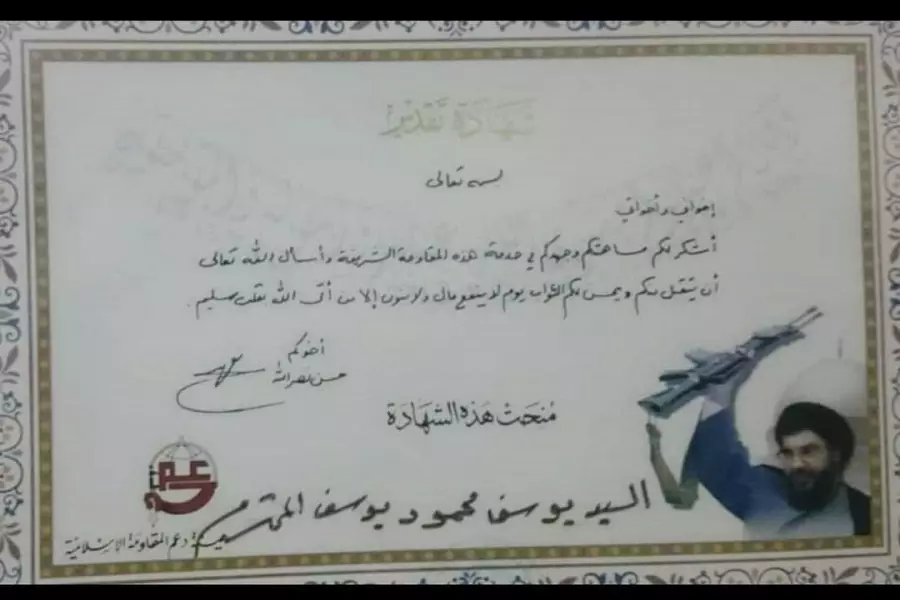 شهادة تقدير
بسمه تعالى
إخواني وأخواتي
أشكر لكم مساهمتكم وجهدكم في خدمة هذه المقاومة الشريفة وأسأل الله تعالى
أن يتقبل منكم ويحسن لكم الثواب يوم لا ينفع مال ولا بنون إلا من أتى الله بقلب سليم.
أخوكم
حسن نصرالله
مُنحَت هَذه الشهَادَة
السيد يوسف محمود يوسف المحترم
هيئة دعم المقاومة الإسلامية